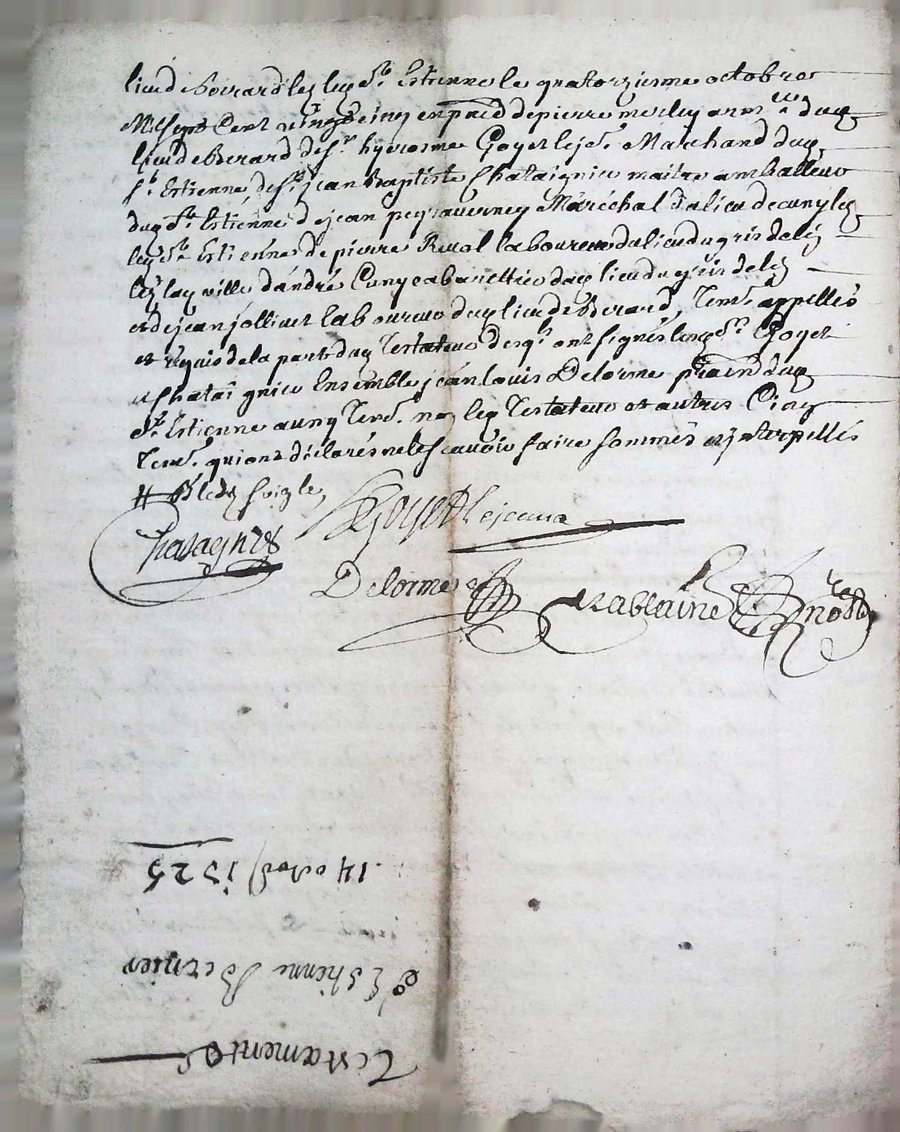 lieud Berard lez led St Estienne le quatorziesme octobre
Mil Sept Cent vingt Cinq en pnce de pierre merley anm dud
lieud Berard de Sr hyerosme Goyet le je. Marchand dud
St Estienne, de Sr jean Baptiste Chataignier maitre amballeur
dud St Estienne de jean peyssaverney Maréchal du lieu de cuny lez
led St Estienne de pierre Reval laboureur du lieu du gris de lez
lez lad ville d'andré Cuny cabarettier dud lieu du gris de lez
et de jean jollivet laboureur dud lieu de Berard, Tem. appellés
et requis de la part dud Testateur desq. ont signés lesd. Srs Goyet
et Chataignier Ensemble jean louis Delorme pratn dud
St Estienne aussy Tem. non led Testateur et autres Cinq
Tem. qui ont déclarés ne le scavoir faire sommés et jnterpellés
# Bled Seigle,
Chataignier
Goyet Lejeune
Delorme
Rablaine
no.re
14 octob 1725
Estienne Bernier
Testament